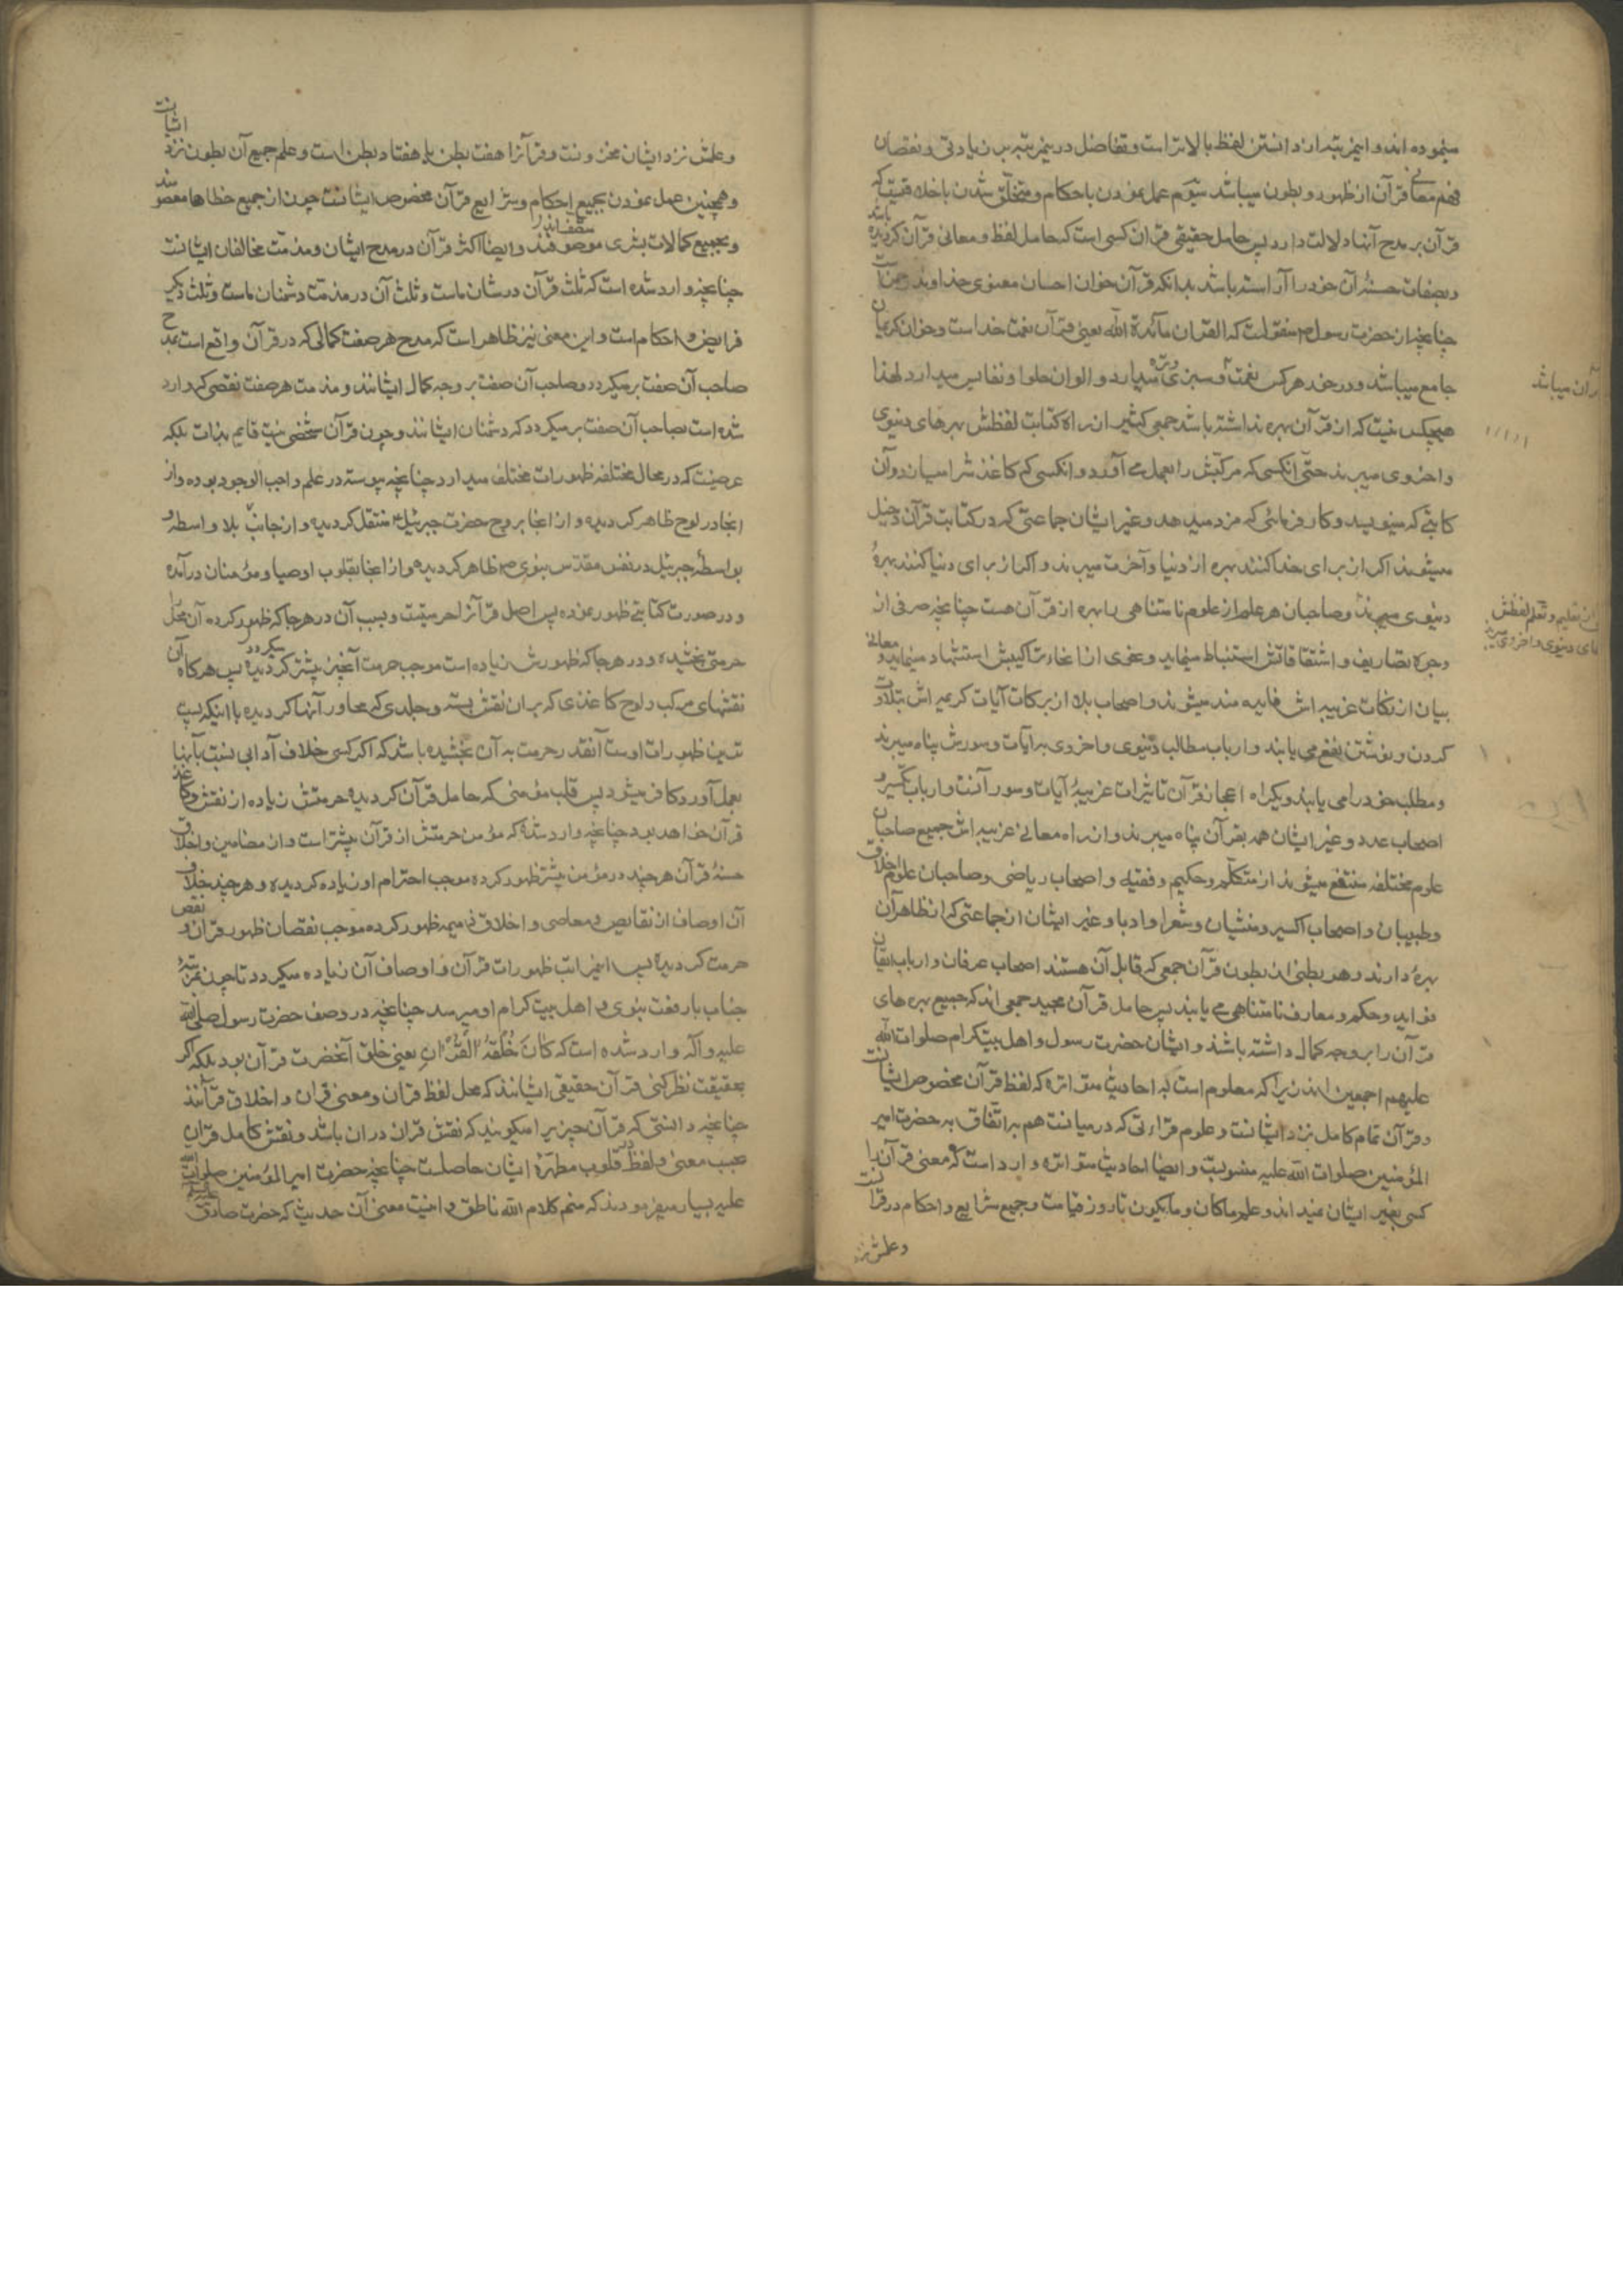 مینموده اند و اینمرتبه از دانستن لفظ بالاتر است و تفاضل در ینمرتبه بسبب زیادتی و نقصان
فهم معانی قرآن از ظهور و بطون میباشد سیّوم عمل نمودن باحکام و متخلّق شدن باخلاقیست که
قرآن بر مدح آنها دلالت دارد پس حامل حقیقی قران کسی است که حامل لفظ و معانی قرآن کردیده باشد
و بصفات حسنهٔ آن خود را آراسته باشد بدانکه قرآن خوان احسان معنوی خداوند رحمن است
چنانچه از حضرت رسول ص منقولست که القران مائدة الله یعنی قرآن نعمت خداست و خوان کریمان
جامع میباشد و درخور هرکس نعمت و سبزی و تره میدارد و الوان حلوا و نفایس میدارد لهذا
هیچکس نیست که از قرآن بهره نداشته باشد جمعی کثیر از راه کتابت لفظش بهرهای دنیوی
و اخروی میبرند حتّی آنکسی که مرکّبش را بعمل می آورد و انکسی که کاغذش را میسازد و آن
کاتبی که مینویسد و کارفرمائی که مزد میدهد و غیر ایشان جماعتی که در کتابت قرآن دخیل
میشوند اکر از برای خدا کنند بهره از دنیا و آخرت میبرند و اکر از برای دنیا کنند بهرهٔ
دنیوی میبرند و صاحبان هر علم از علوم نامتناهی را بهره از قرآن هست چنانچه صرفی از
وجوه تصاریف و اشتقاقاتش استنباط مینماید و نحوی از انحاء تراکیبش استشهاد مینماید و معانی
بیان از نکات غریبه اش فایده مند میشوند و اصحاب بلا از برکات آیات کریمه اش بتلاوت
کردن و نوشتن نفع می یابند و ارباب مطالب دنیوی و اخروی به آیات و سورش پناه میبرند
و مطلب خود را می یابند و یکراه اعجاز قرآن تاثیرات غریبهٔ آیات و سور آنست و ارباب تکسیر و
اصحاب عدد و غیر ایشان همه بقرآن پناه میبرند و از راه معانی غریبه اش جمیع صاحبان
علوم مختلفه منتفع میشوند از متکلّم و حکیم و فقیه و اصحاب ریاضی و صاحبان علوم اخلاق
و طبیبان و اصحاب اکسیر و منشیان و شعرا و ادبا و غیر ایشان از جماعتی که از ظاهر آن
بهره دارند و هر بطنی از بطون قرآن جمعی که قابل آن هستند اصحاب عرفان و ارباب ایقان
فواید و حکم و معارف نامتناهی می یابند پس حامل قرآن مجید جمعی اند که جمیع بهره های
قرآن را بر وجه کمال داشته باشند و ایشان حضرت رسول و اهل بیت کرام صلوات الله
علیهم اجمعین اند زیرا که معلوم است به احادیث متواتره که لفظ قرآن مخصوص ایشانست
و قرآن تمام کامل نزد ایشانست و علوم قراءتی که در میانست هم به اتّفاق به حضرت امیر
المؤمنین صلوات الله علیه منسوبست و ایضا احادیث متواتره وارد است که معنی قرآن را
کسی بغیر ایشان نمیداند و علم ماکان و مایکون تا روز قیامت و جمیع شرایع و احکام در قرآنست
و علمش نزد
قرآن میباشد
تعلیم و تعلّم لفظش
های دنیوی و اخروی میبرند
و علمش نزد ایشان مخزونست و قرآنرا هفت بطن یا هفتاد بطن است و علم جمیع آن بطون نزد ایشانست
و همچنین عمل نمودن بجمیع احکام و شرایع قرآن مخصوص ایشانست چون از جمیع خطاها معصومند
و بجمیع کمالات بشری موصوفند و ایضا اکثر قرآن در مدح ایشان و مذمّت مخالفان ایشانست
چنانچه وارد شده است که ثلث قرآن در شان ماست و ثلث آن در مذمّت دشمنان ماست و ثلث دیکر
فرایض و احکام است و این معنی نیز ظاهر است که مدح هر صفت کمالی که در قرآن واقع است بمدح
صاحب آن صفت برمیکردد و صاحب آن صفت بر وجه کمال ایشانند و مذمت هر صفت نقصی که وارد
شده است بصاحب آن صفت برمیکردد که دشمنان ایشانند و چون قرآن شخصی نیست قایم بذات بلکه
عرضیست که در محال مختلفه ظهورات مختلف میدارد چنانچه پیوسته در علم واجب الوجود بوده و از
انجا در لوح ظاهر کردیده و از انجا بروح حضرت جبرئیل منتقل کردیده و از جانب بلا واسطه و
بواسطهٔ جبرئیل در نفس مقدّس نبوی ص ظاهر کردیده و از انجا بقلوب اوصیا و مؤمنان درآمده
و در صورت کتابتی ظهور نموده پس اصل قرآنرا حرمتیست و بسبب آن در هرجا که ظهور کرده آن محل را
حرمتی بخشیده و در هرجا که ظهورش زیاده است موجب حرمت آنچیز بیشتر کردیده میکردد پس هرکاه آن
نقشهای مرکب و لوح کاغذی که بر ان نقش بسته و جلدی که مجاور آنها کردیده با اینکه پست
ترین ظهورات اوست آنقدر حرمت به آن بخشیده باشد که اکر کسی خلاف آدابی نسبت بآنها
بعمل آورد کافر میشود پس قلب مؤمنی که حامل قرآن کردیده حرمتش زیاده از نقش و کاغذ
قرآن خواهد بود چنانچه وارد شده که مؤمن حرمتش از قرآن بیشتر است و از مضامین و اخلاق
حسنهٔ قرآن هرچند در مؤمن بیشتر ظهور کرده موجب احترام او زیاده کردیده و هرچند بخلاف
آن اوصاف از نقایص و معاصی و اخلاق ذمیمه ظهور کرده موجب نقصان ظهور قرآن و نقص
حرمت کردیده پس اینمراتب ظهورات قرآن و اوصاف آن زیاده میکردد تا چون بمرتبهٔ
جناب با رفعت نبوی و اهل بیت کرام او میرسد چنانچه در وصف حضرت رسول صلی الله
علیه و آله وارد شده است که کَانَ خُلُقُهُ الْقُرْانَ یعنی خلق آنحضرت قرآن بود بلکه اکر
بحقیقت نظر کنی قرآن حقیقی ایشانند که محل لفظ قران و معنی قران و اخلاق قرآنند
چنانچه دانستی که قرآن چیزیرا میکویند که نقش قران در ان باشد و نقش کامل قران
بحسب معنی و لفظ در قلوب مطهّرهٔ ایشان حاصلست چنانچه حضرت امیر المؤمنین صلوات الله
علیه بسیار میفرمودند که منم کلام الله ناطق و اینست معنی آن حدیث که حضرت صادق علیه السلم